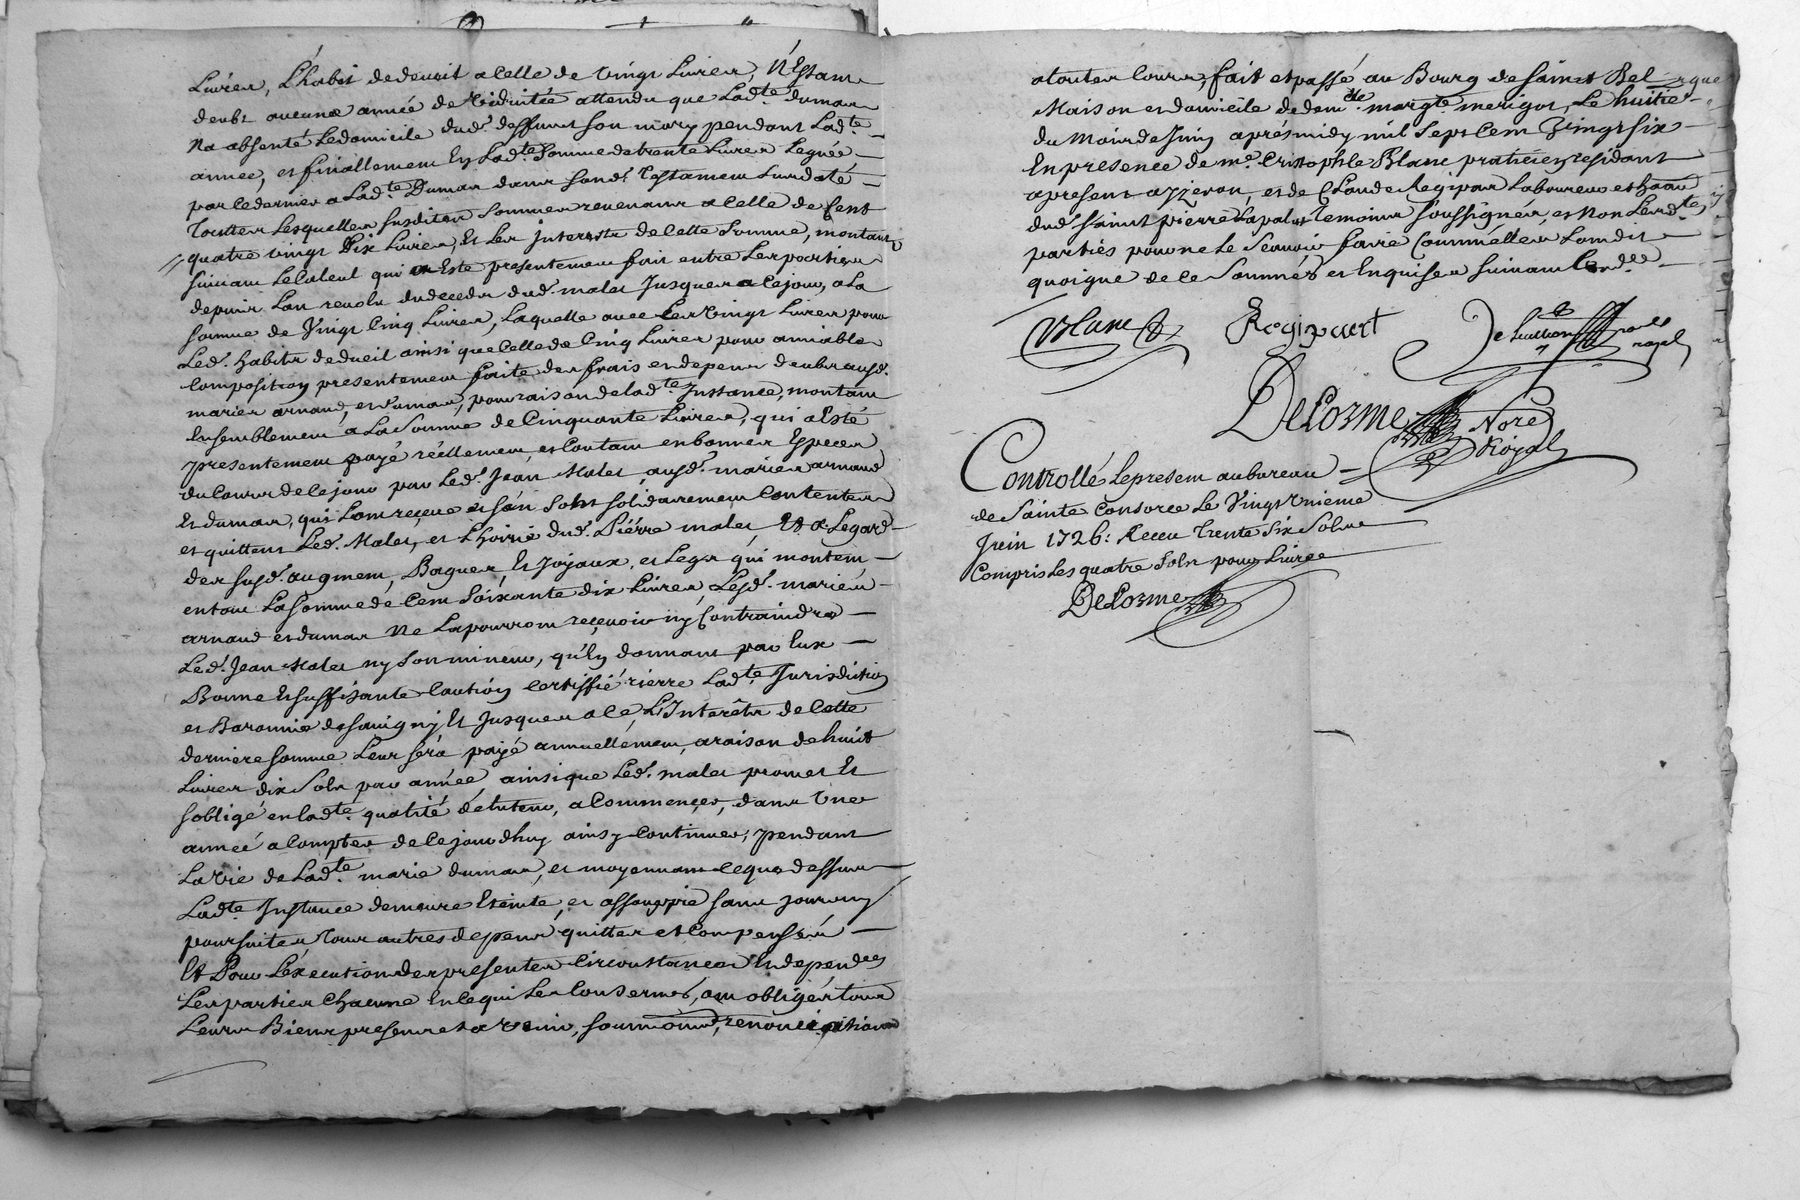 Livres, L'habit dedeueil a Celle de Vingt Livres, N'Estant
deubt aucune année de Viduitée attendu que Ladte. dumas
Na absenté Ledomicile dud. deffunt son mary pendant Ladte.
année, et finallement En Ladte. Somme detrente Livres Leguée
par Cedernier a Ladte Dumas dans sond. Testament Susdaté
Toutes Lesquelles Susdites Sommes revenant a Celle de Cent
quatre vingt Dix Livres, Et Les Interests de Cette Somme, montant
suivant LeCalcul qui En Este presentement fait entre Les parties
depuis Lan revolu dudeceds dud. malet Jusques a Cejour, a La
somme de Vingt Cinq Livres, Laquelle avec Les Vingt Livres pour
Led. habits dedueil ainsi que Celle de Cinq Livres pour amiable
Composition presentement faite des frais et depens deubs ausd.
maries arnaud, et dumas, pour raison de Ladte. Instance, montant
Ensemblement a La Somme de Cinquante Livres, qui a Esté
presentement payé réellement et Contant en bonnes Especes
du Cours de Cejour par Led. Jean Malet ausd. maries arnaud
Et dumas, qui Lont reçeue et s'en sont solidairement Contentes
et quittent Led. Malet, et Lhoirie dud. Pierre malet, Et a Legard
des susd. augment, Bagues Et Joyaux, et Legs qui montent
entout La somme de Cent soixante dix Livres, Lesd. maries
arnaud et dumas Ne La pourront reçevoir ny Contraindre
Led. Jean Malet ny Son mineur, qu'En donnant par Eux
Bonne Et suffisante Caution Certiffié rierre Ladte Jurisdition
et Baronnie de Savigny Et Jusques a Ce, L'Interêts de Cette
derniere somme Leur sera payé annuellement, a raison de huit
Livres dix Sols par année ainsi que Led. malet promet Et
soblige en Ladte. qualité de tuteur, a Commencer, dans Une
année a Compter de Cejourdhuy ainsy Continuer, pendant
La Vie de Ladte. marie dumas, et moyennant Ceque dessus
Ladte Instance demeure Eteinte, et assoupie sans pouvoir
poursuites tous autres depens quittes et Compensés
Et Pour L'éxecution des presentes Circonstances Et dependces
Les parties Chacune En Ce qui Les Conserne, ont obligés tous
Leurs Biens presents et a Venir, soumons, renonciations
a toutes Cours, fait et passé au Bourg de saint Bel
Maison et domicile de demlle. margte merigot, Le huitie
du Mois de Juin aprés midy mil Sept Cent Vingt six
En presence de me. Cristophle Blanc praticien residant
a present a yzeron, et de Claude Regipas Laboureur et
dud. saint pierre La palud Temoins soussignés, et Non Lesdtes
parties pour ne Le Scavoir faire Comme elles Lont dit
quoique de Ce Sommés et Enquises suivant Lordce
Blanc
Regipaert
royal
DeLorme Nore
Royal
Controllé Lepresent aubureau
de Sainte Consorce Le Vingt Unieme
Juin 1726: Receu Trente Six Sols
Compris Les quatre Sols pour Livre
DeLorme